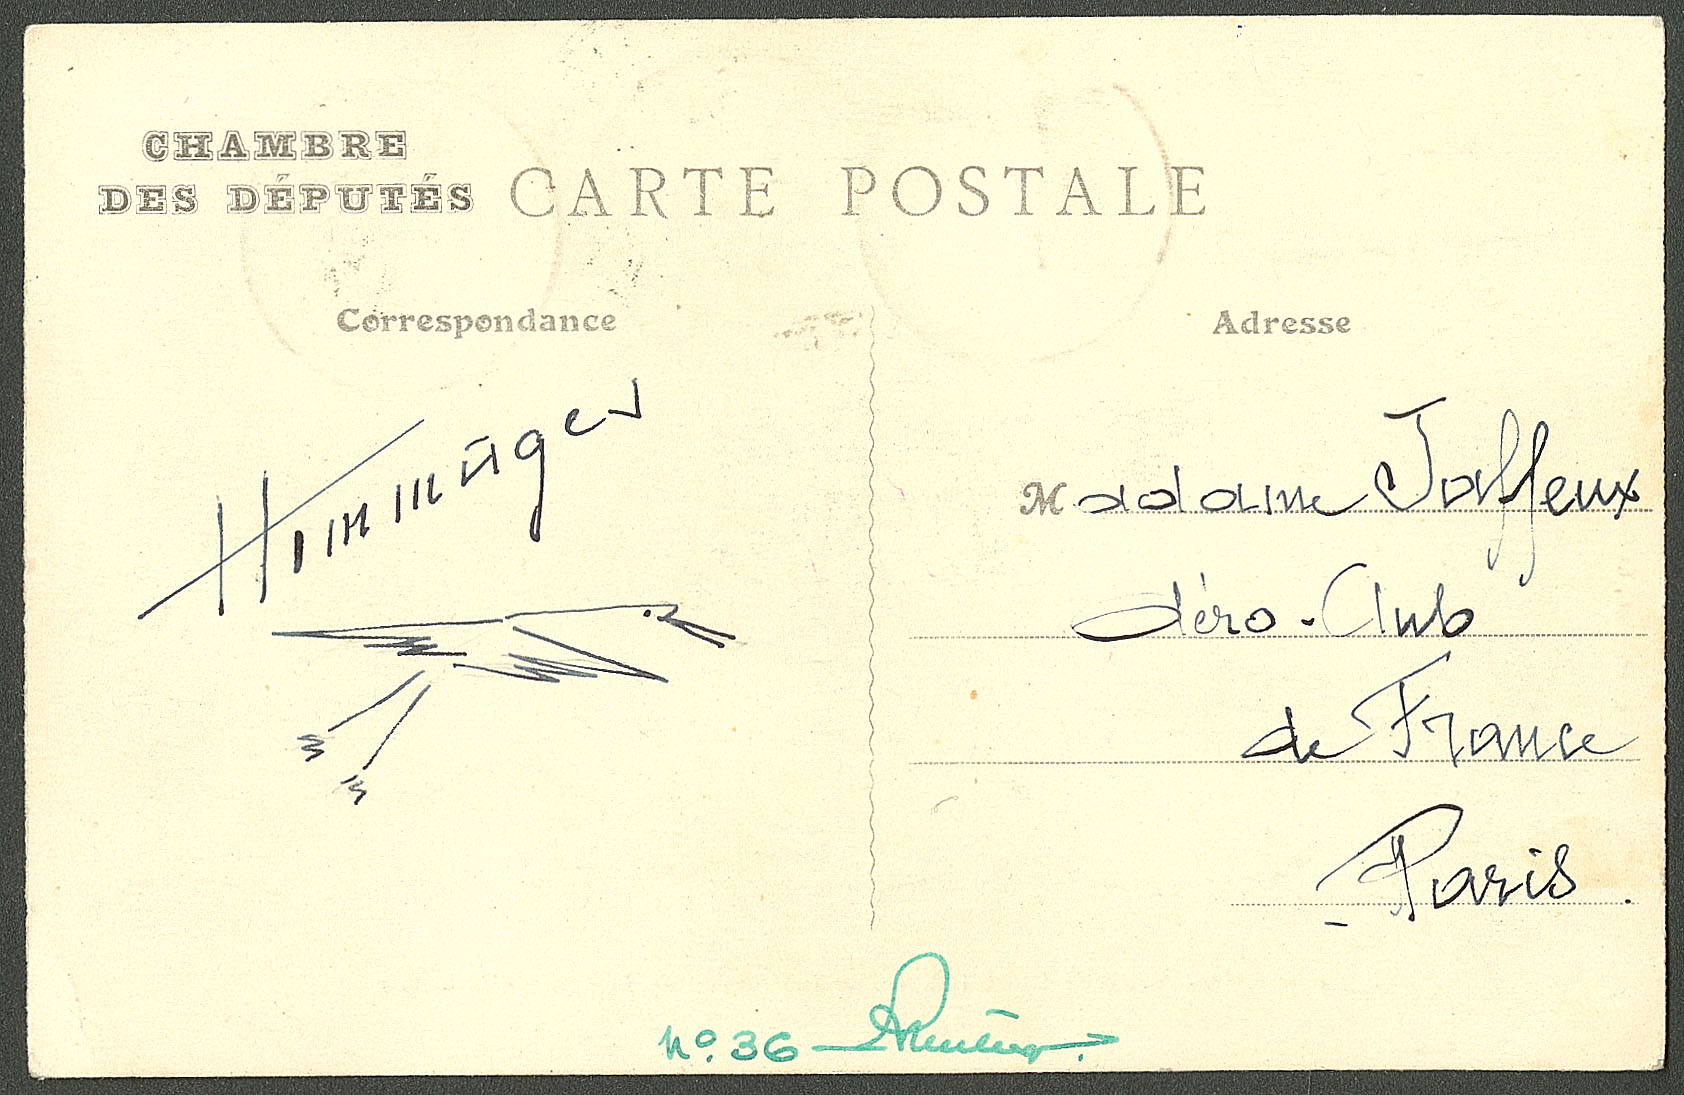 CHAMBRE
DES DÉPUTÉS
CARTE POSTALE
Correspondance
Adresse
Madame Jaffeux
Aéro-Club
de France
Paris.
No. 36